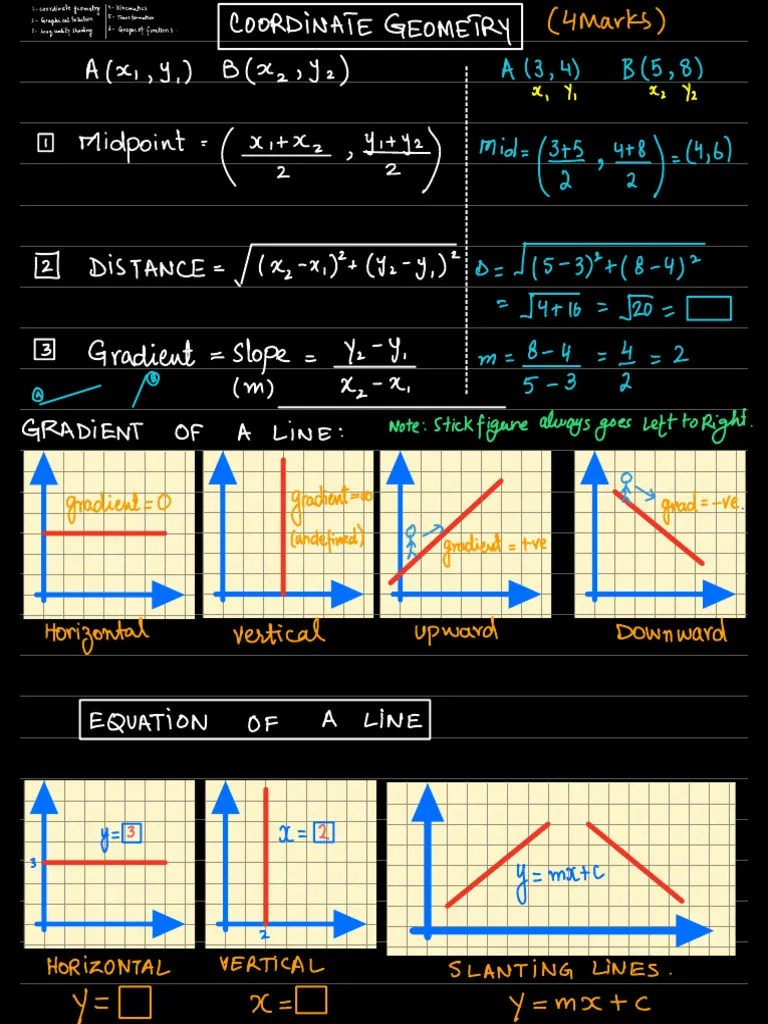 1- coordinate geometry
2- Graphical Solution
3- Inequality shading
4- Kinematics
5- Transformation
6- Graphs of functions
COORDINATE GEOMETRY (4Marks)
A(x₁, y₁) B(x₂, y₂)
A (3,4) B(5,8)
x₁ y₁ x₂ y₂
1 Midpoint = (x₁+x₂/2 , y₁+y₂/2)
Mid = (3+5/2 , 4+8/2) = (4,6)
2 DISTANCE = √(x₂-x₁)²+(y₂-y₁)²
D = √(5-3)²+(8-4)²
= √4+16 = √20 =
3 Gradient = Slope = y₂-y₁/x₂-x₁
(m)
m = 8-4/5-3 = 4/2 = 2
A B
GRADIENT OF A LINE:
Note: Stick figure always goes Left to Right.
gradient = 0
gradient = ∞
(undefined)
gradient = +ve
grad = -ve.
Horizontal
vertical
upward
Downward
EQUATION OF A LINE
y = 3
3
x = 2
2
y = mx+c
HORIZONTAL
VERTICAL
SLANTING LINES.
y =
x =
y = mx + c